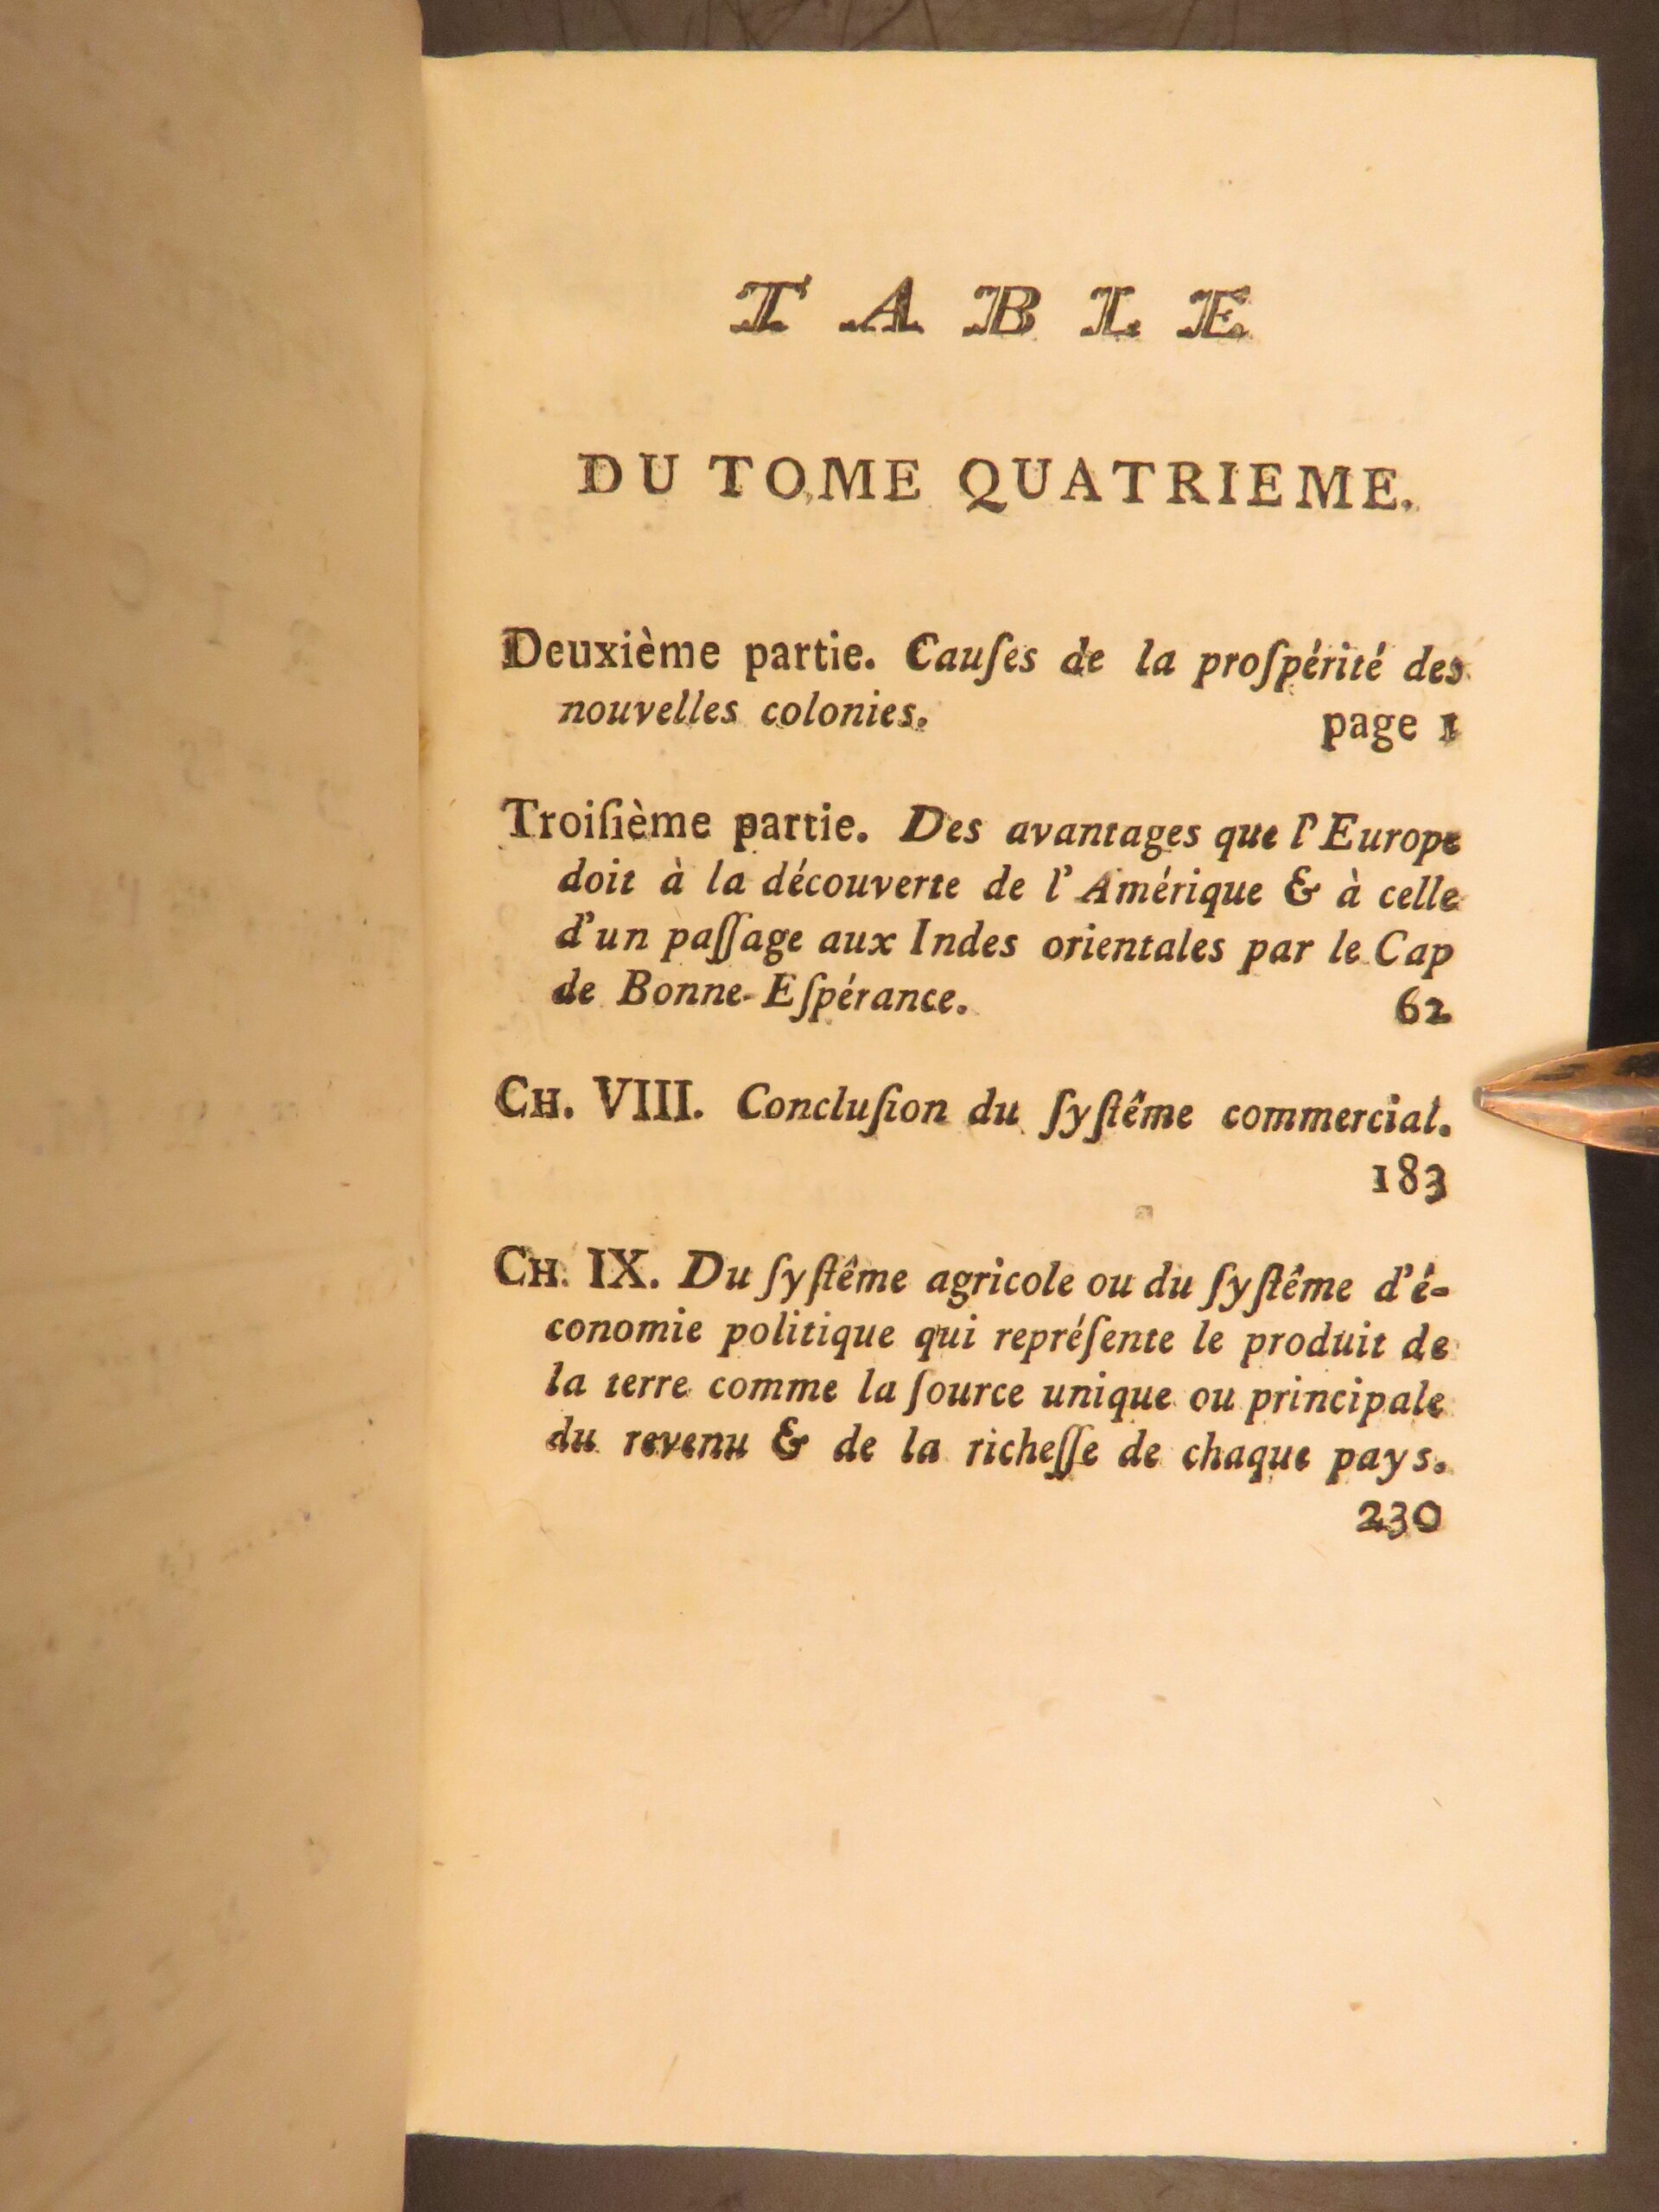 TABLE
DU TOME QUATRIEME.
Deuxième partie. Cauſes de la proſpérité des
nouvelles colonies. page 1
Troiſième partie. Des avantages que l'Europe
doit à la découverte de l'Amérique & à celle
d'un paſſage aux Indes orientales par le Cap
de Bonne-Eſpérance. 62
CH. VIII. Concluſion du ſyſtême commercial.
183
CH. IX. Du ſyſtême agricole ou du ſyſtême d'é-
conomie politique qui repréſente le produit de
la terre comme la ſource unique ou principale
du revenu & de la richeſſe de chaque pays.
230